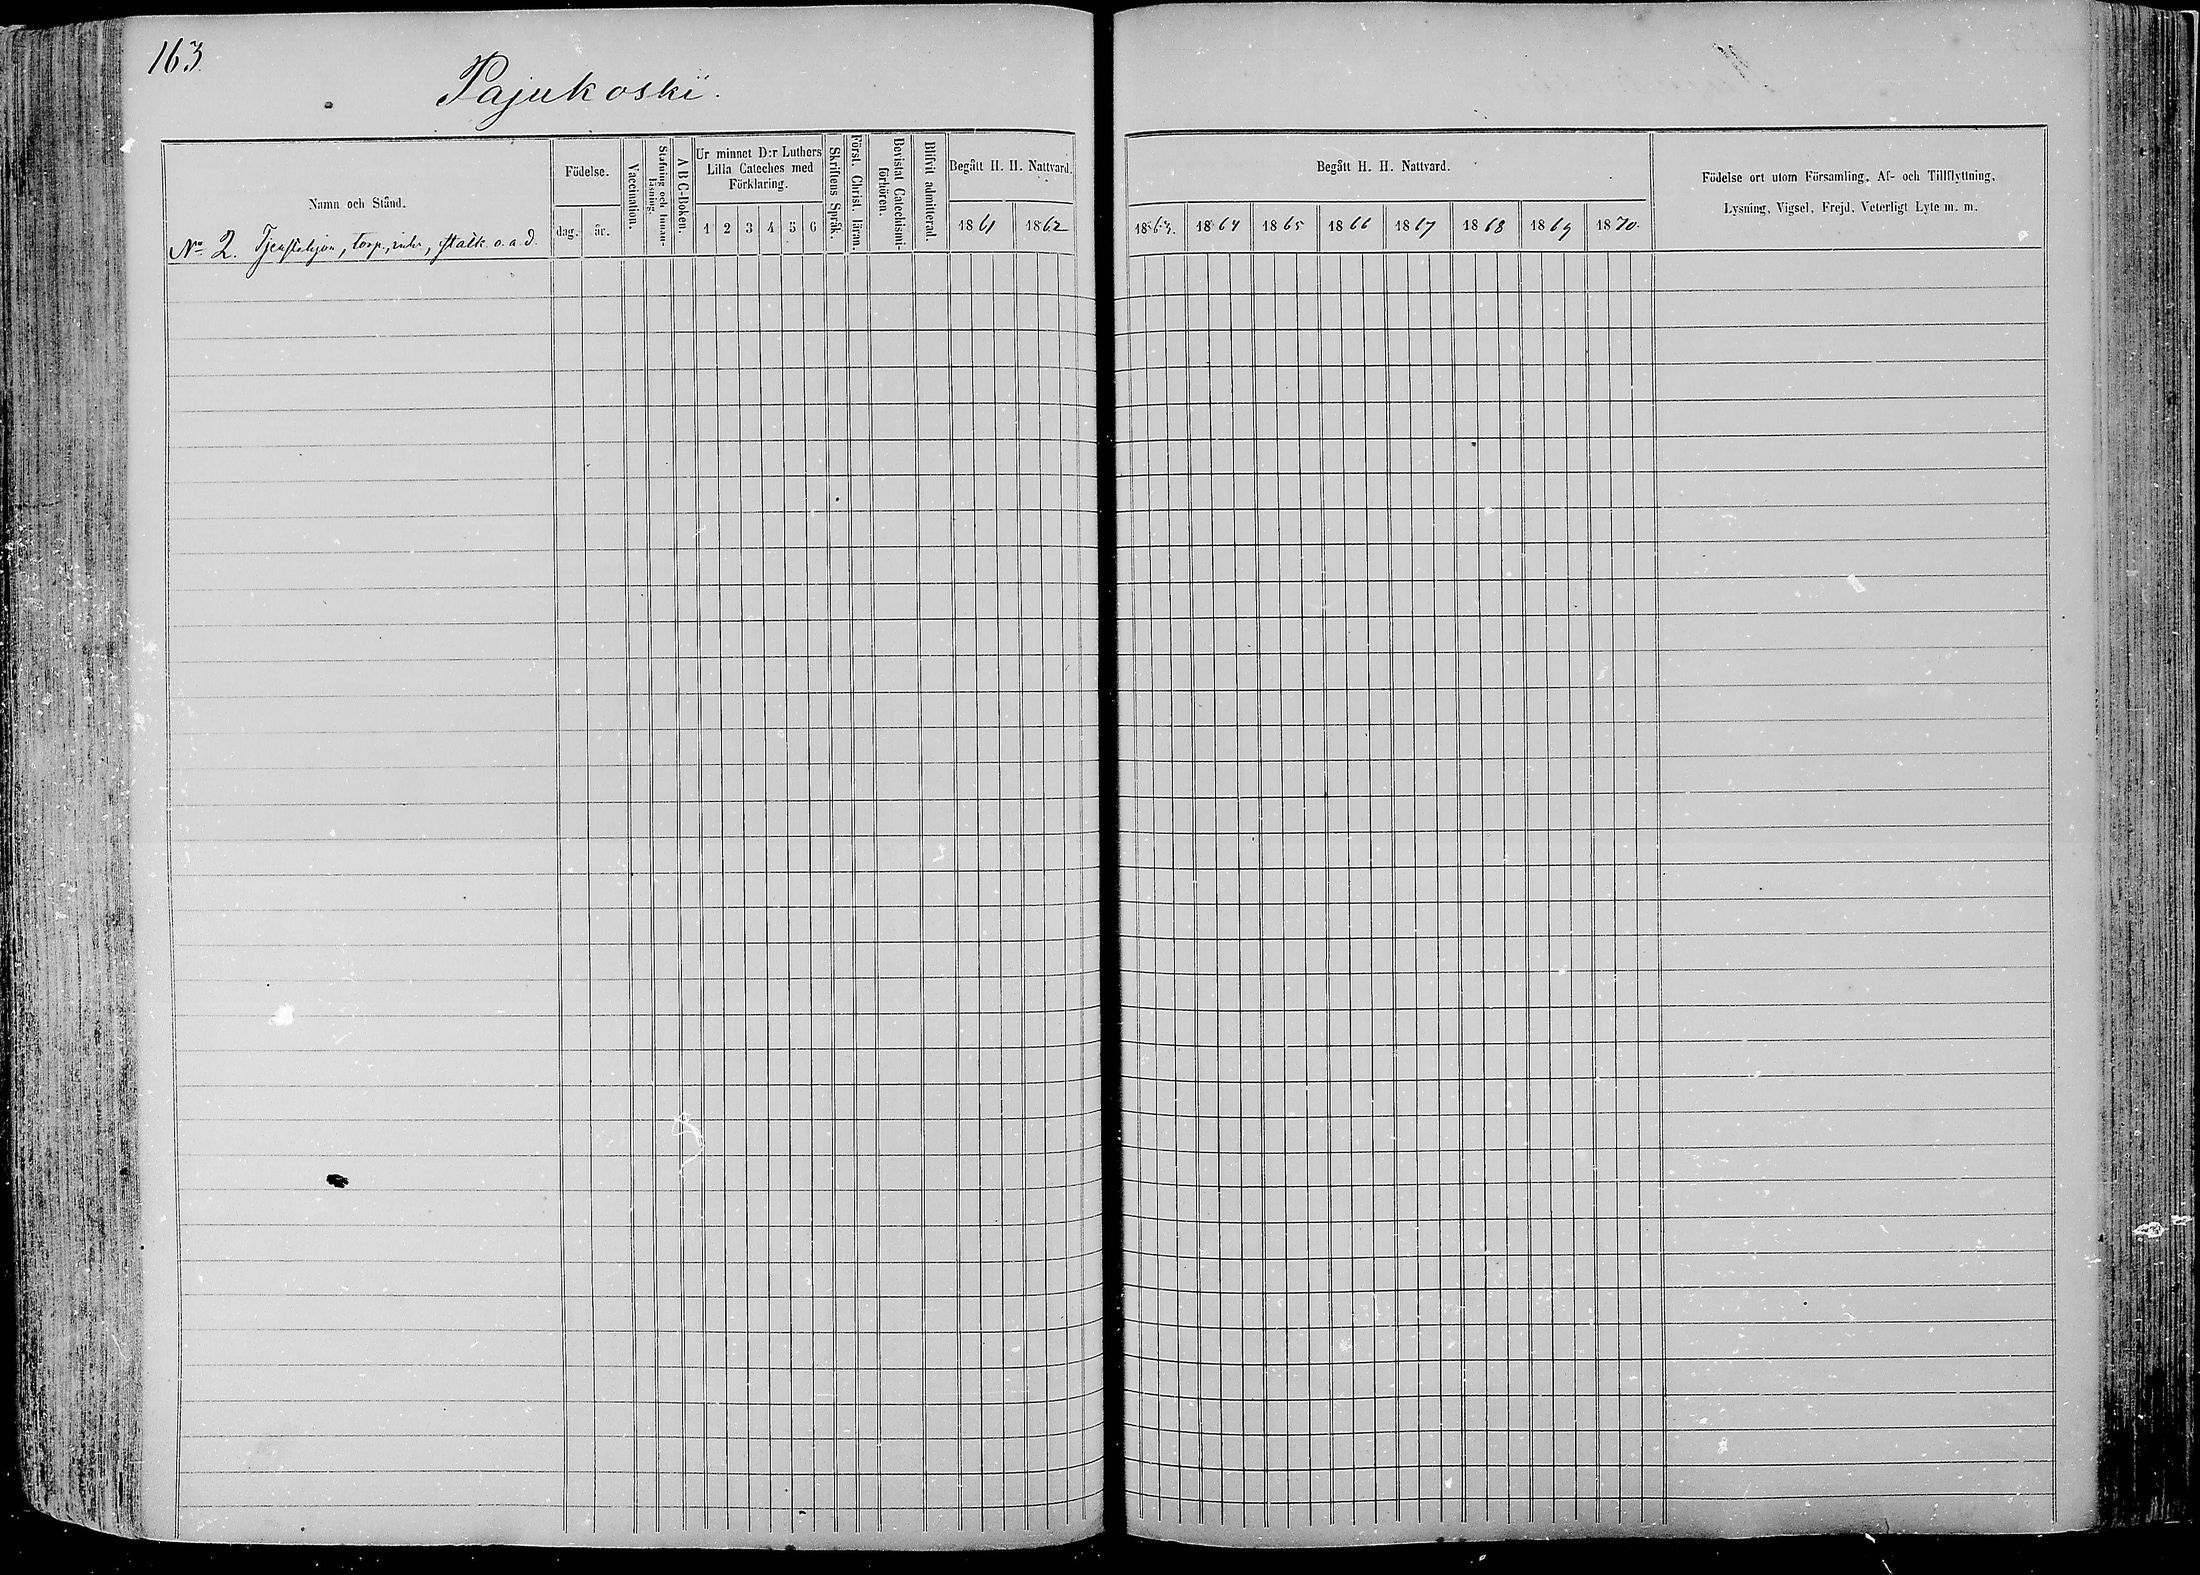 163.
Pajukoski.
Namn och Stånd.
No 2. Tjenstehjon, torp., inh., o.a.d.
Födelse.
dag.
år.
Vaccination.
Stafning och Innan-
läsning.
A B C-Boken.
Ur minnet D:r Luthers
Lilla Cateches med
Förklaring.
1 2 3 4 5 6
Skriftens Språk.
Först. Christ. läran.
Bevistat Catechismi-
förhören.
Blifvit admitterad.
Begått H. H. Nattvard.
1861 1862
Begått H. H. Nattvard.
1863. 1864 1865 1866 1867 1868 1869 1870.
Födelse ort utom Församling, Af- och Tillflyttning,
Lysning, Vigsel, Frejd, Veterligt Lyte m. m.